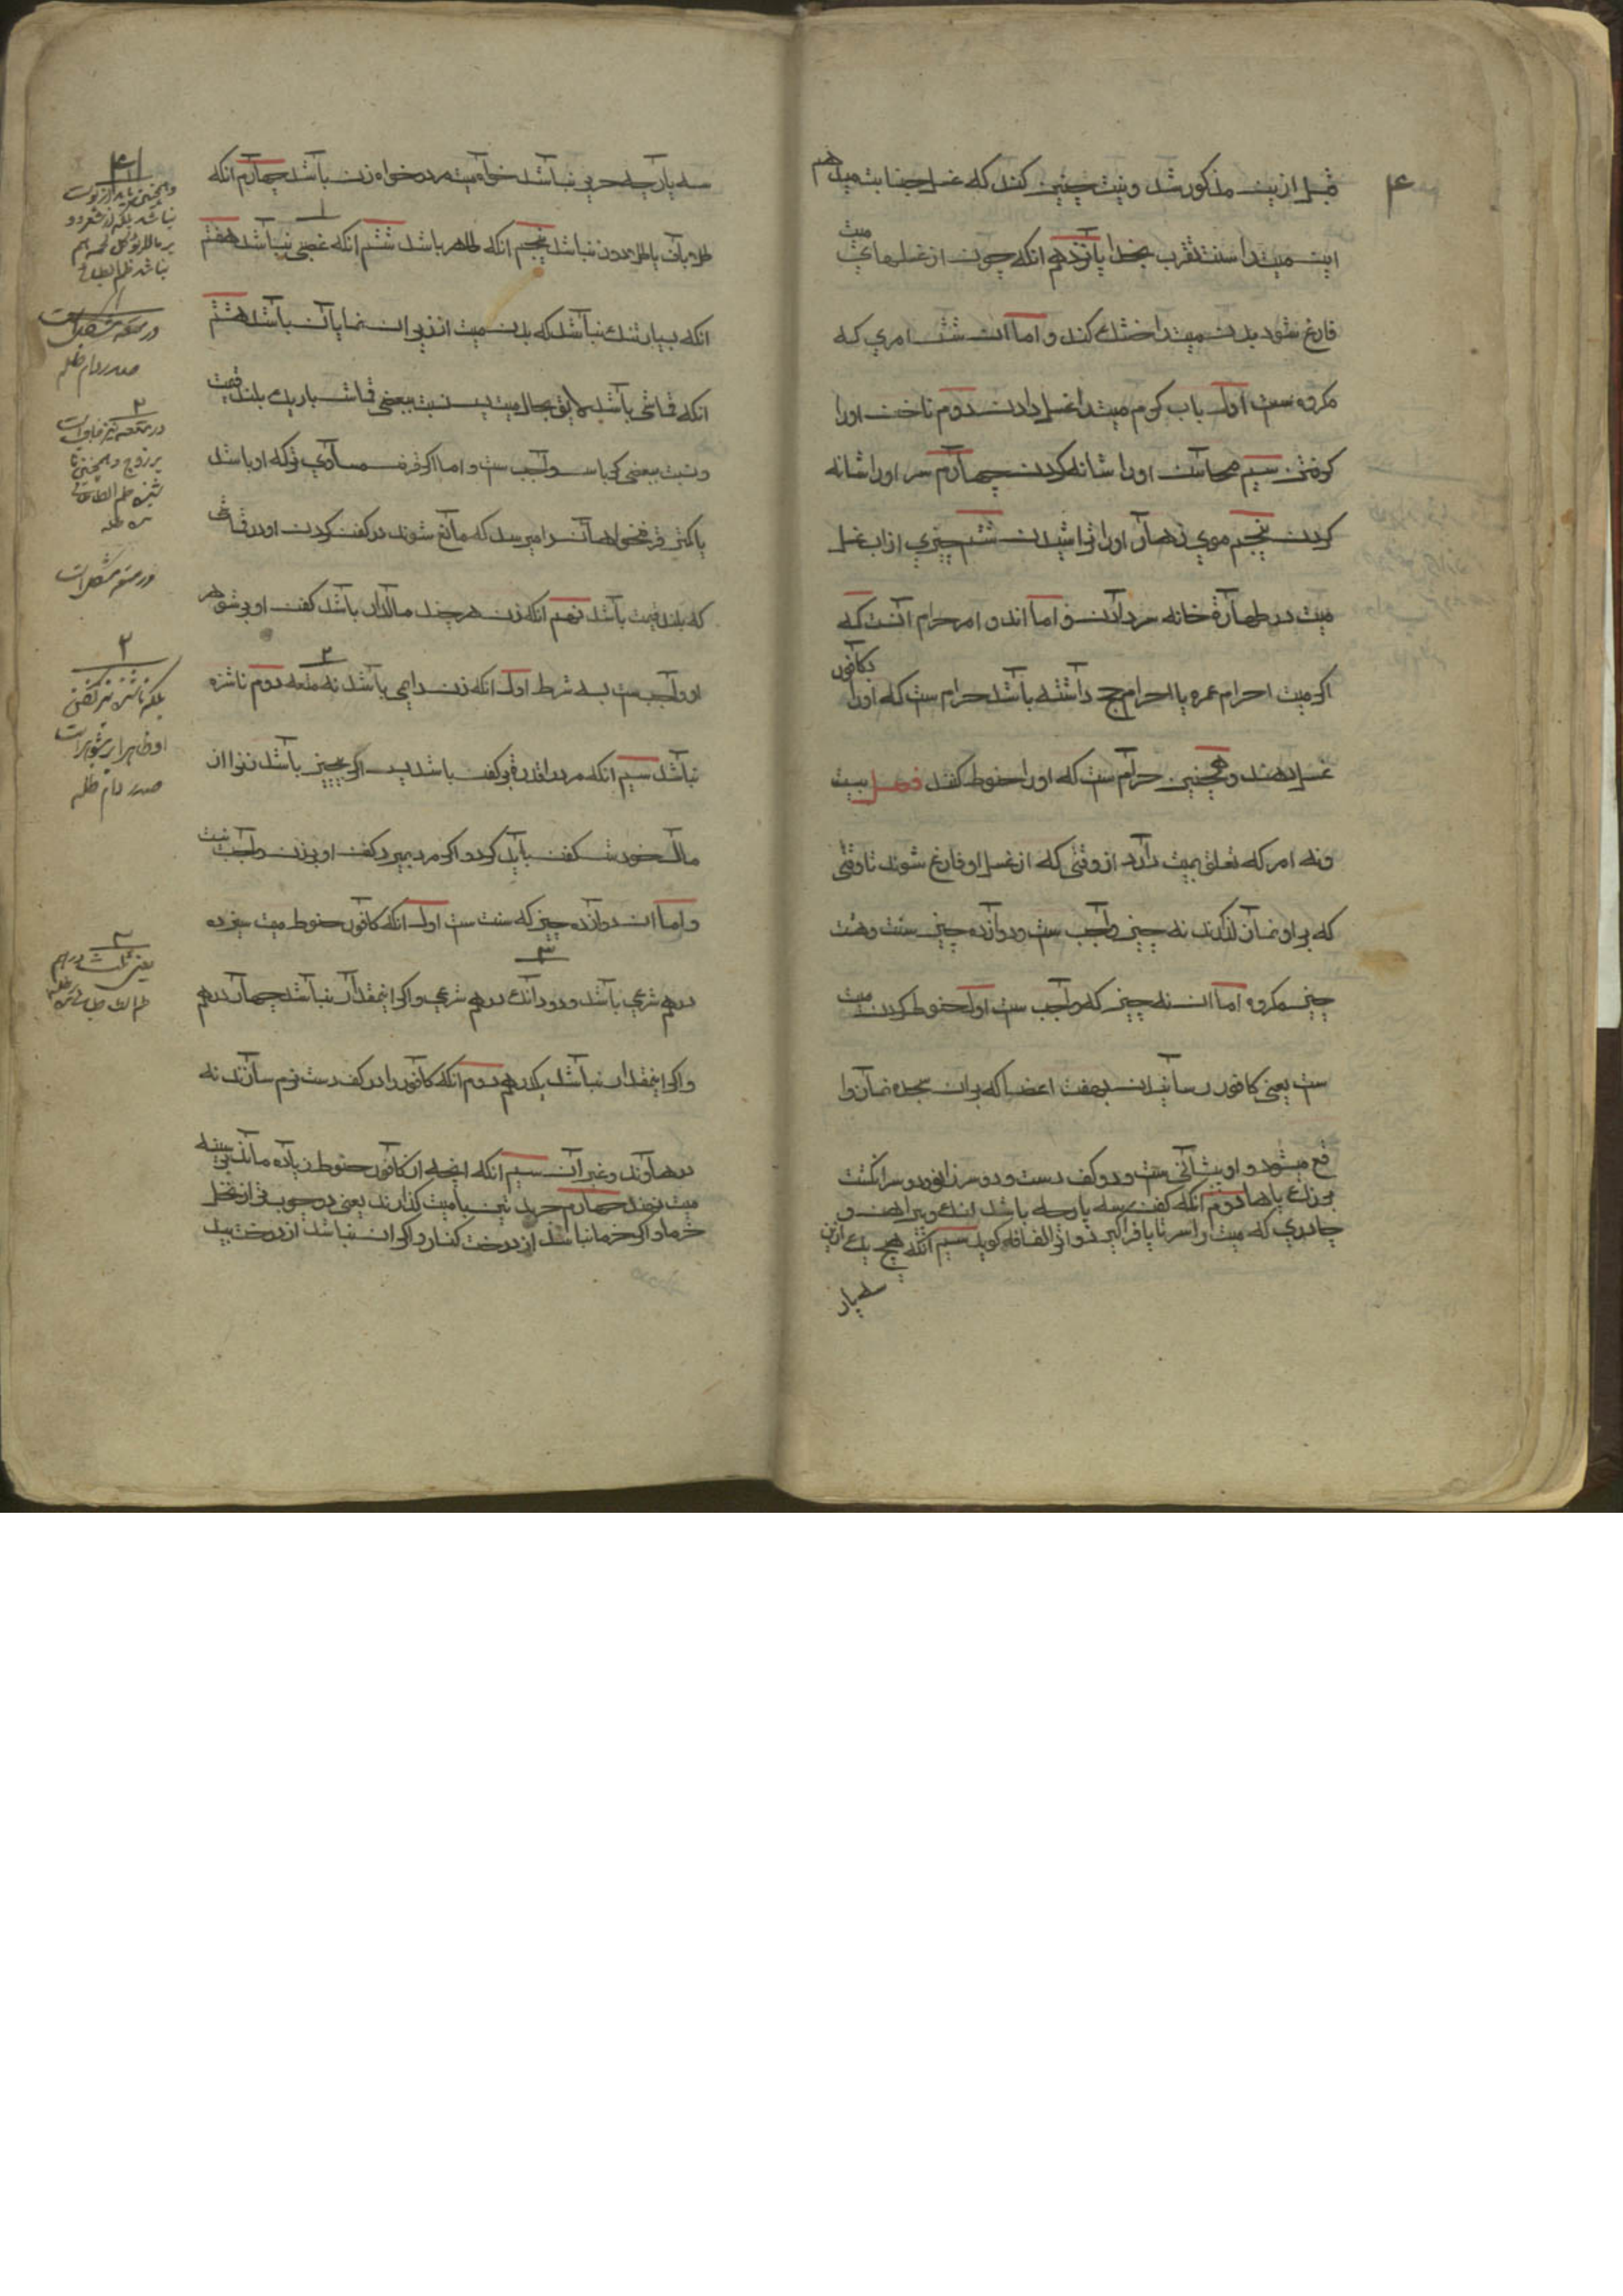 ۴
قبل ازین مذکور شد و نیت چنین کند که غسل جنابت میدهم
این میت را سنت تقرب بخدا پانزدهم انکه چون از غسلهای میت
فارغ شود بدن میت را خشک کند و اما ان شش امری که
مکروه ست اول باب کرم میت را غسل دادن دوم ناخن اورا
کرفتن سیم محاسن اورا شانه کردن چهارم سر اورا شانه
کردن پنجم موی زهار اورا تراشیدن ششم چیزی از اب غسل
میت در طهارة خانه سر دادن و اما اند و امر حرام آنست که
اکر میت احرام عمره یا احرام حج داشته باشد حرام ست که اورا بکافور
غسل دهند و همچنین حرام ست که اورا حنوط کنند فصل بیست
ونه امر که تعلق بمیت دارد از وقتی که از غسل او فارغ شوند تا وقتی
که بر او نماز نکذارند نه چیز واجب ست و دوازده چیز سنت و هشت
چیز مکروه اما ان نه چیز که واجب ست اول حنوط کردن میت
ست یعنی کافور رسانیدن بهفت اعضا که بران سجده نماز وا
قع میشود و او پیشانی ست و دو کف دست و دو سر زانو و دو سر انکشت
بزرک پاها دوم انکه کفن سه پارچه باشد لنک و پیراهن و
چادری که میت را سر تا پا فراکیرد و انرا لفافه کویند سیم انکه هیچ یک ازین
سه پار
سه پارچه حریر نباشد خواه میت مرد خواه زن باشد چهارم انکه
طلا باف یا طلا دوز نباشد پنجم انکه طاهر باشد ششم انکه غصبی نباشد هفتم
انکه بسیار تنک نباشد که بدن میت از زیر ان نمایان باشد هشتم
انکه قماشی باشد لایق بحال میت پس نسبت ببعضی قماش باریک بلند قیمت
و نسبت ببعضی کرباس واجب ست و اما اکر قرض مساوی ترکه او باشد
یا کمتر قرضخواهان را میرسد که مانع شوند در کفن کردن او در قماش
که بلند قیمت باشد نهم انکه زن هر چند مالدار باشد کفن او بر شوهر
او واجب ست بسه شرط اول انکه زن دایمی باشد نه متعه دوم ناشزه
نباشد سیم انکه مرد را قدرة بر کفن باشد پس اکر عاجز باشد زنرا از
مال خودش کفن باید کرد و اکر مرد بمیرد کفن او بر زن واجب نیست
و اما ان دوازده چیز که سنت ست اول انکه کافور حنوط میت سیزده
درهم شرعی باشد و دو دانک درهم شرعی و اکر اینمقدار نباشد چهار درهم
و اکر اینمقدار نباشد یکدرهم دوم انکه کافور را در کف دست نرم سازند نه
در هاون و غیر ان سیم انکه اینچه از کافور حنوط زیاده ماند بر سینه
میت نهند چهارم جریدتین با میت کذارند یعنی دو چوب تر از نخل
خرما و اکر خرما نباشد از درخت کنار و اکر ان نباشد از درخت بید
در متعه نیز
بر زوج و همچنین
بلکه ناشزه نیز کفن
او
یعنی ثلث درهم